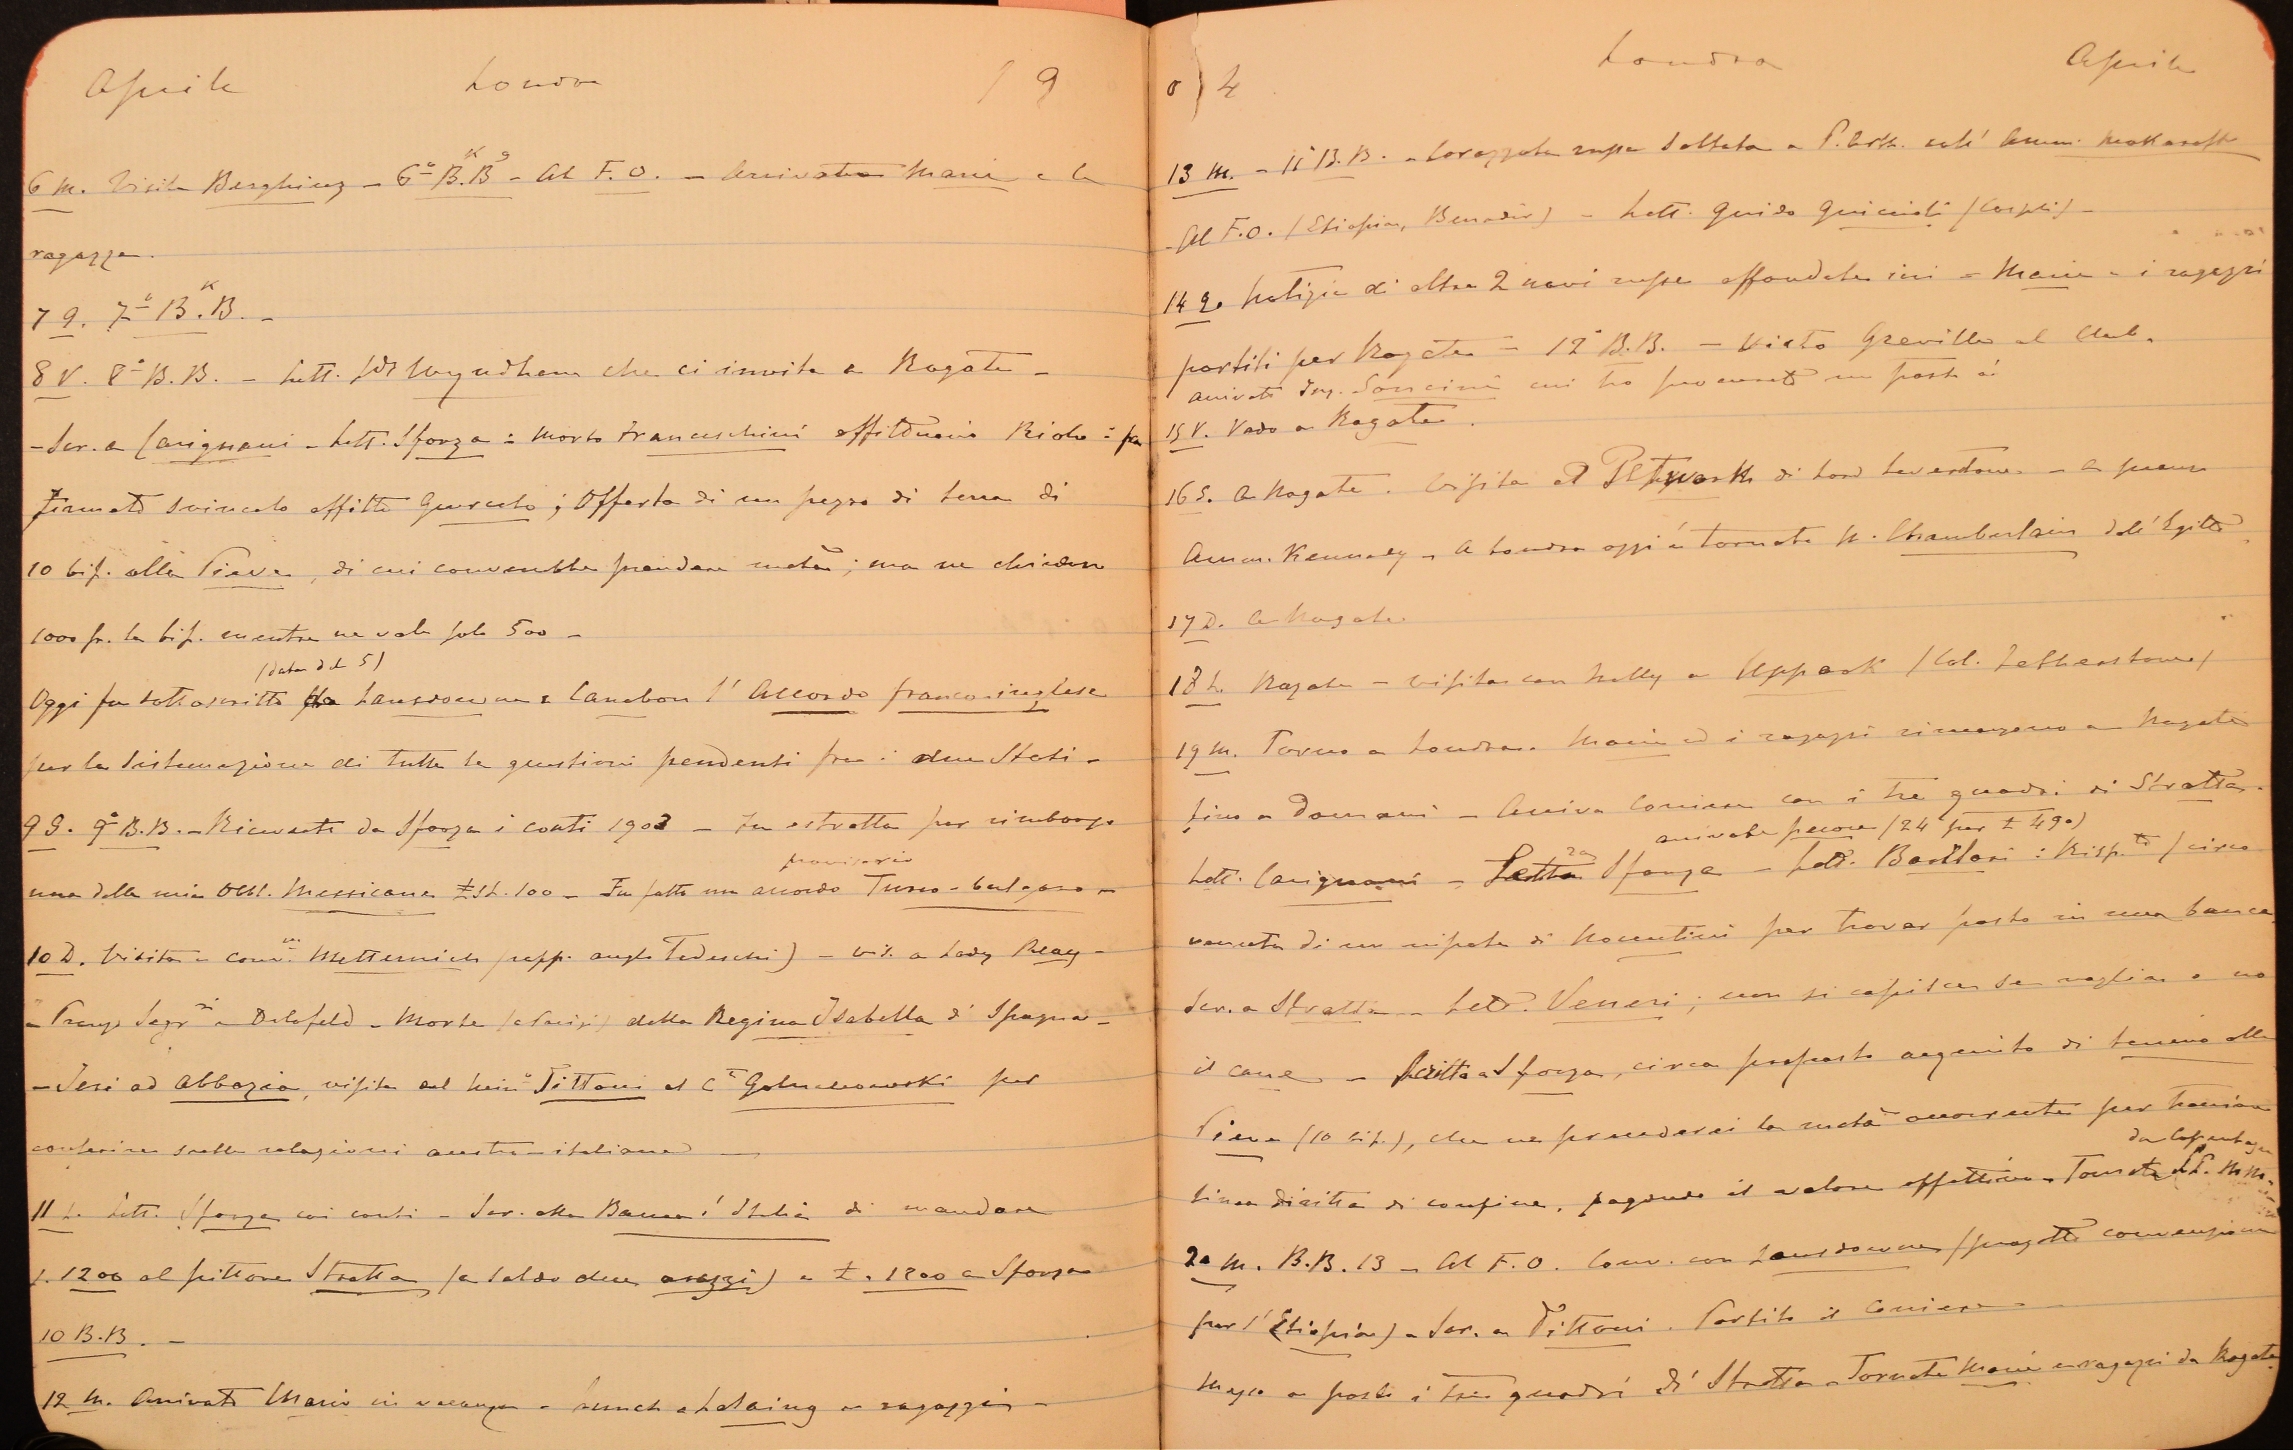 Aprile Londra 19
6 M. Visita Berghinz - 6ª B.B - Al F.O. - Arrivata Maria e la
ragazza.
7 G. 7ª B.B. -
8 V. 8ª B.B. - Lett. Wyndham che ci invita a Rogate -
- Scr. a Carignani - Lett. Sforza : Morto Franceschini affittuario Riolo -
firmato svincolo affitto Querceto ; Offerta di un pezzo di terra di
10 bif. alla Pieve, di cui converrebbe prendere metà ; ma ne chiedono
1000 fr. la bif. mentre ne vale solo 500 -
(data del 5)
Oggi fu sottoscritto da Lansdowne e Cambon l' Accordo franco-inglese
per la sistemazione di tutte le questioni pendenti fra i due Stati -
9 S. 9ª B.B. - Ricevuti da Sforza i conti 1903 - Fu estratta per rimborso
provvisorio
una delle mie Obbl. Messicane £ St. 100 - Fu fatto un accordo Turco-bulgaro -
10 D. Visita e conv. Metternich (rapp. anglo Tedeschi) - vis. a Lady Reay -
- Pranzo a Delafeld - Morte (a Parigi) della Regina Isabella di Spagna -
- Ieri ad Abbazia, visita del Min. Tittoni al Cte Goluchowski per
conferire sulle relazioni austro-italiane -
11 L. Lett. Sforza coi conti - Scr. alla Banca d' Italia di mandare
L. 1200 al pittore Stratta (a saldo due arazzi) e £. 1200 a Sforza
10 B.B. -
12 M. Arrivato Mario in vacanza - Lunch a Lalaing e ragazzi -
04 Londra Aprile
13 M. - 11ª B.B. - Corazzata russa saltata a P. Arth. coll' Amm. Makaroff
- Al F.O. (Etiopia, Benadir) - Lett. Guido Guicciardi -
14 G. Notizia di altre 2 navi russe affondate ieri - Maria e i ragazzi
partiti per Rogate - 12ª B.B. - Visto Greville al Club.
arrivato Ing. Soncini cui ho procurato un posto
15 V. Vado a Rogate.
16 S. A Rogate. Visita a Petworth di Lord Leconfield - A pranzo
Amm. Kennedy - A Londra oggi è tornato M. Chamberlain dall' Egitto
17 D. A Rogate.
18 L. Rogate - visita con Nelly a Uppark (Col. Fetherstone)
19 M. Torno a Londra. Maria ed i ragazzi rimangono a Rogate
fino a domani - Arriva Corriere con i tre quadri di Stratta -
arrivate pecore (24 per £ 490)
Lett. Carignani - Lettera Sforza - Lett. : Risp. circa
venuta di un nipote di Nocentini per trovar posto in una banca.
Scr. a Stratta - Lett. Veneri ; non si capisce se voglia o no
il cane - Scritto a Sforza, circa proposto acquisto di terreno alla
Pieve (10 bif.), che ne prenderei la metà occorrente per
da Copenhagen
linea diritta di confine, pagando il valore effettivo. Tornate LL. MM.
20 M. B.B. 13 - Al F.O. Conv. con Lansdowne (progetto convenzione
per l' Etiopia) - Scr. a Tittoni. Partito il Corriere -
Messo a posto i tre quadri di Stratta - Tornate Maria e ragazzi da Rogate